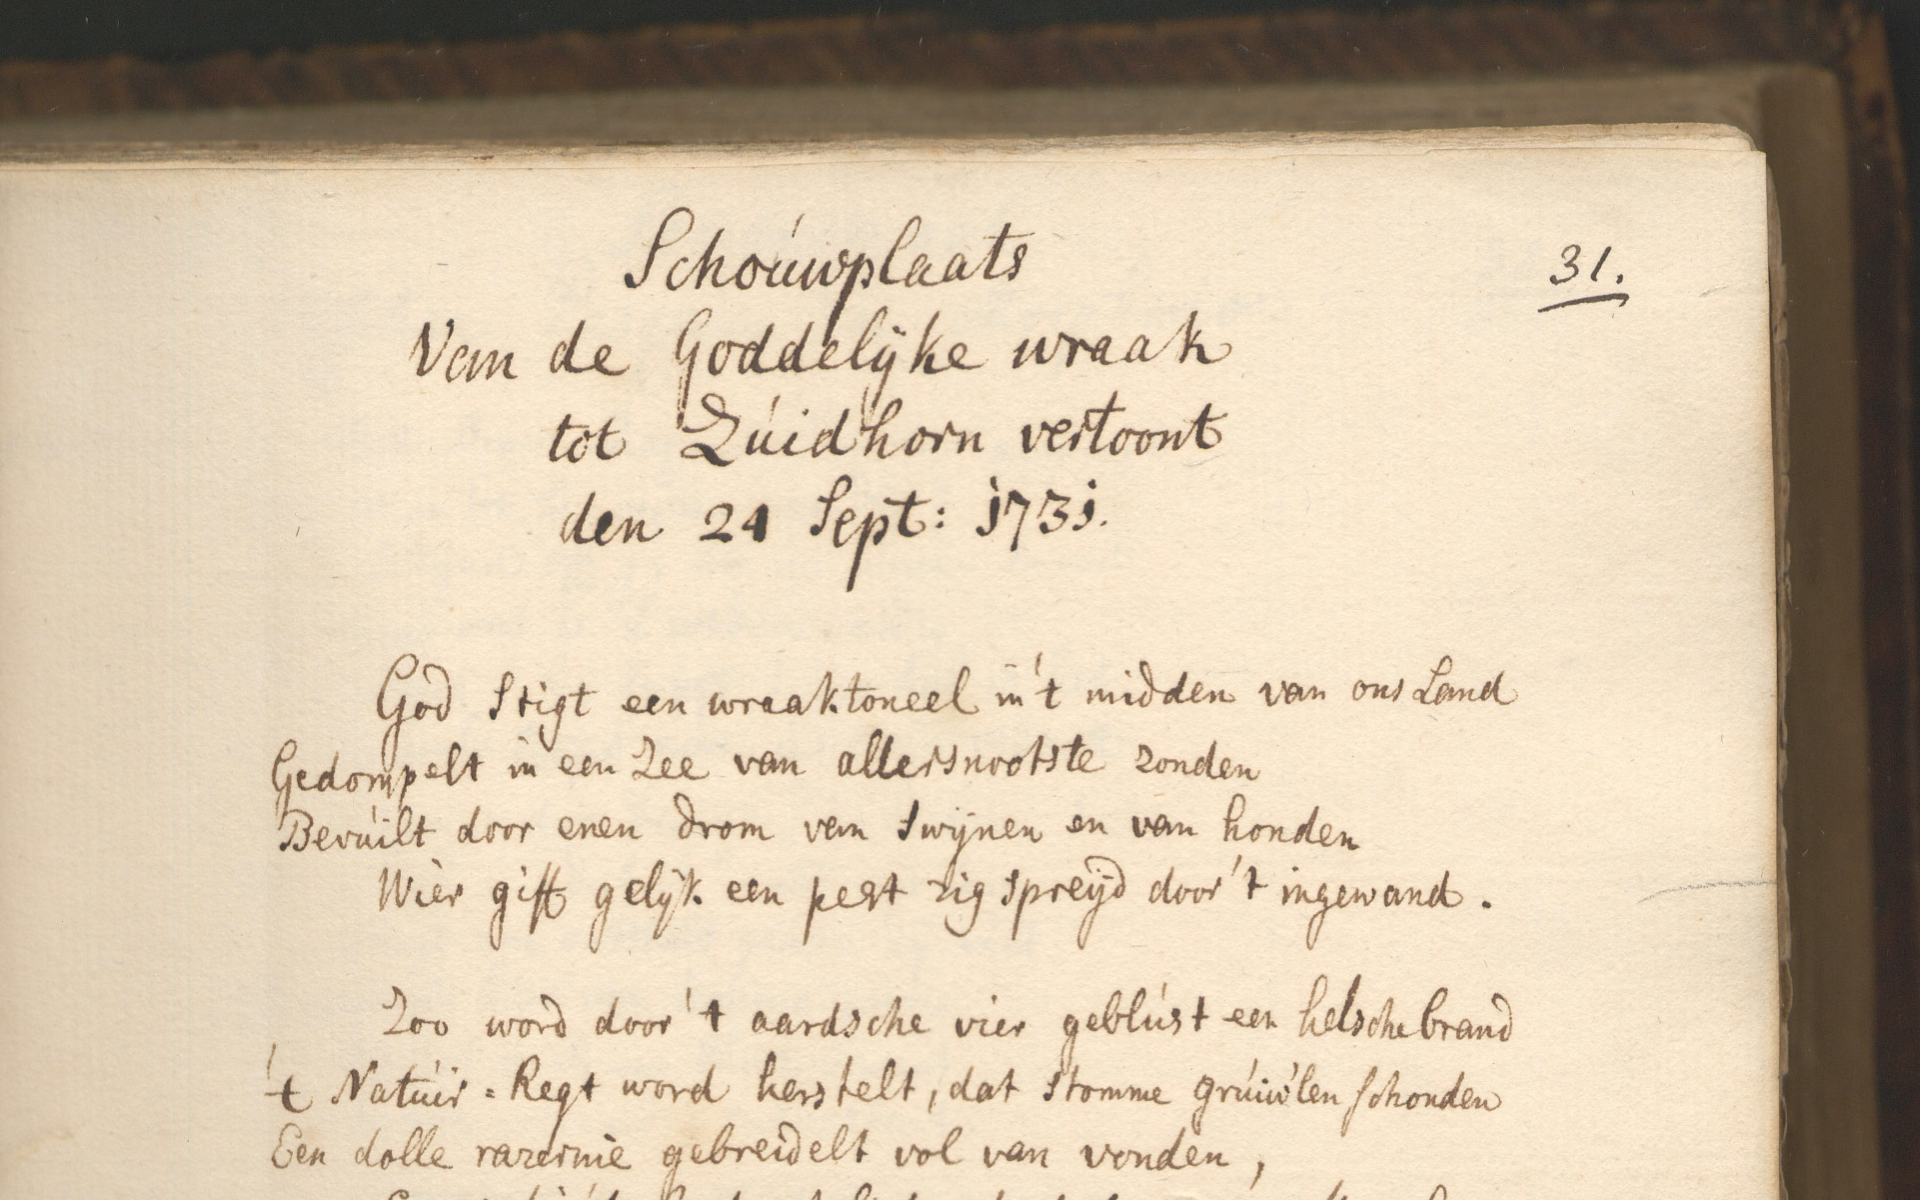 31.
Schouwplaats
Van de Goddelijke wraak
tot Zuidhorn vertoont
den 24 Sept: 1731.
God stigt een wraaktoneel in 't midden van ons Land
Gedompelt in een Zee van allersnootste zonden
Bevuilt door enen drom van swijnen en van honden
Wier gift gelijk een pest zig spreijd door 't ingewand.
Zoo word door 't aardsche vier geblust een helsche brand
't Natuir = Regt word herstelt, dat stomme gruiw'len schonden
Een dolle razernie gebreidelt vol van vonden,